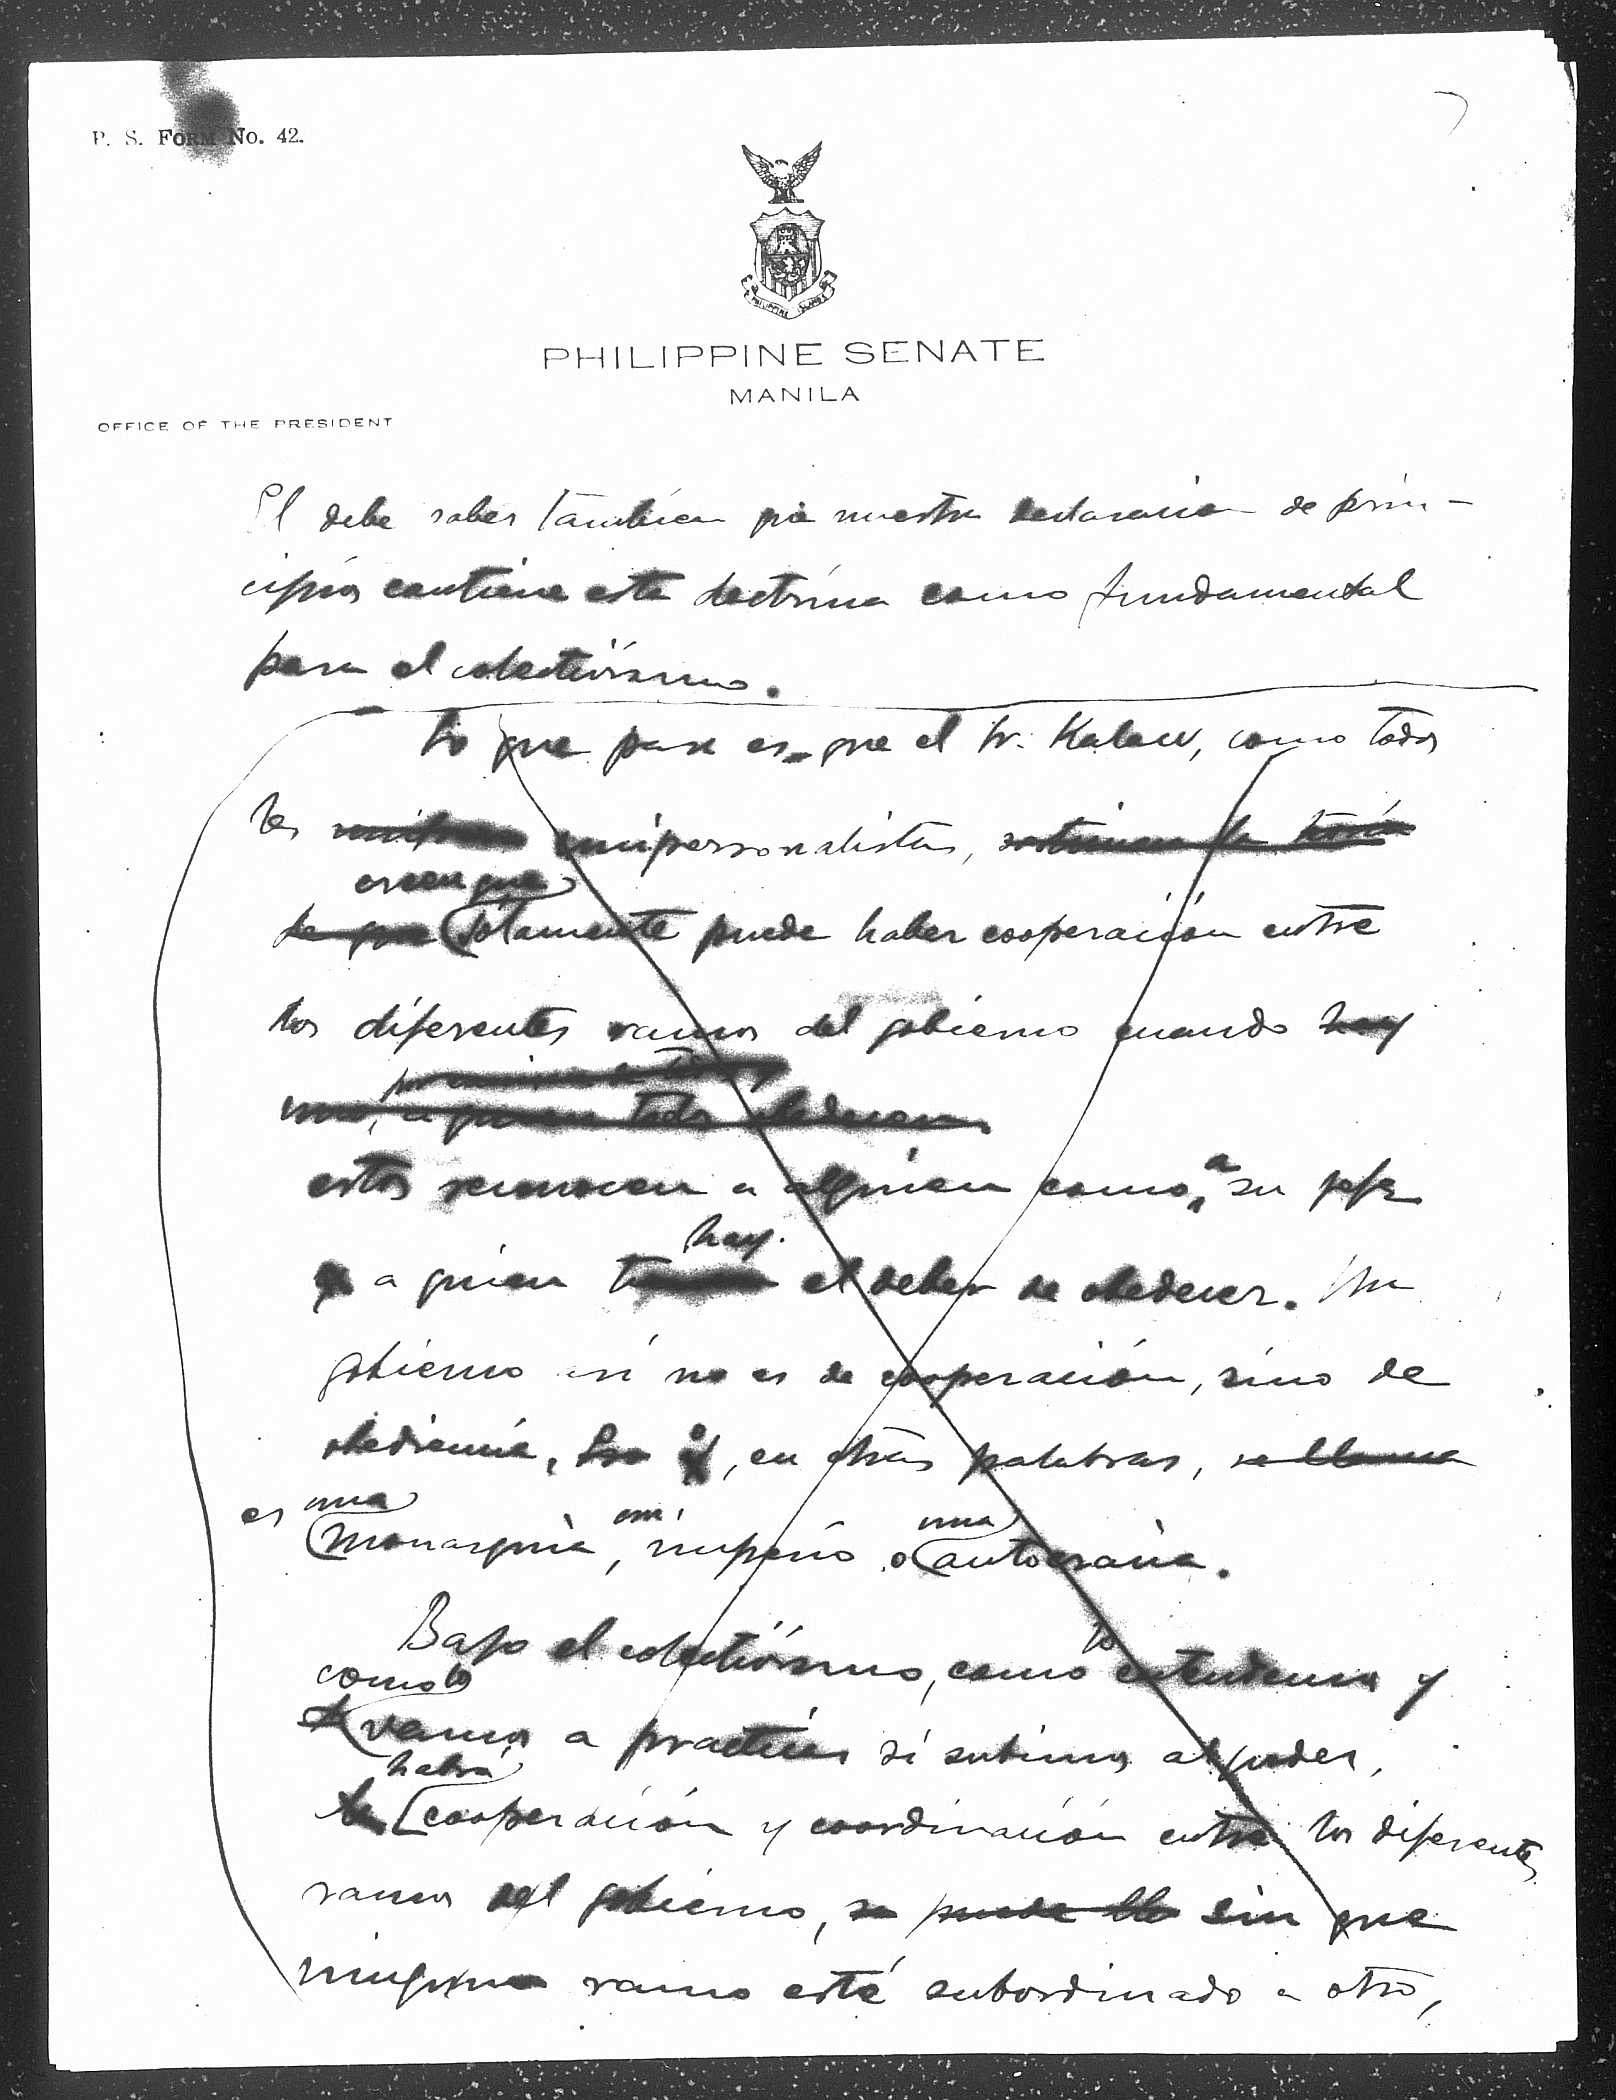 P. S. FORM No. 42.
PHILIPPINE ISLANDS
PHILIPPINE SENATE
MANILA
OFFICE OF THE PRESIDENT
El debe saber también que nuestra declaración de prin-
cipios contiene esta doctrina como fundamental
para el colectivismo.
Lo que pasa es que el Sr. Kalaw, como todos
los unipersonalistas, sostienen la teoría
creen que
de que sólamente puede haber cooperación entre
los diferentes ramos del gobierno cuando hay
uno, a quien todos obedecen.
estos reconocen a alguien como a su jefe
a quien hay el deber de obedecer. Un
gobierno así no es de cooperación, sino de
obediencia. Eso, en otras palabras, se llama
es una
monarquía, un imperio o una autocracia.
Bajo el colectivismo, como lo entendemos y
como lo
vamos a practicar si subimos al poder,
habrá
cooperación y coordinación entre los diferentes
ramos del gobierno, se puede sin que
ningún ramo esté subordinado a otro,